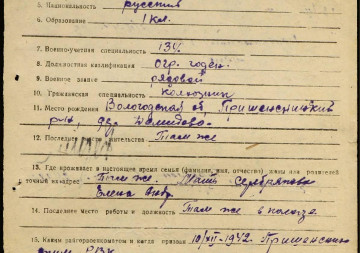 5. Национальность русский
6. Образование 1 кл.
7. Военноучетная специальность 134
8. Должностная квалификация огр. годен.
9. Военное звание рядовой
10. Гражданская специальность колхозник
11. Место рождения Вологодская об.
р-н, дер.
12. Последнее место жительства Там же
13. Где проживает в настоящее время семья (фамилия, имя, отчество) жены или родителей
и точный их адрес Там же. Мать
Елена
14. Последнее место работы и должность Там же в колхозе.
15. Каким райгорвоенкоматом и когда призван 10/XII-1942.
РВК